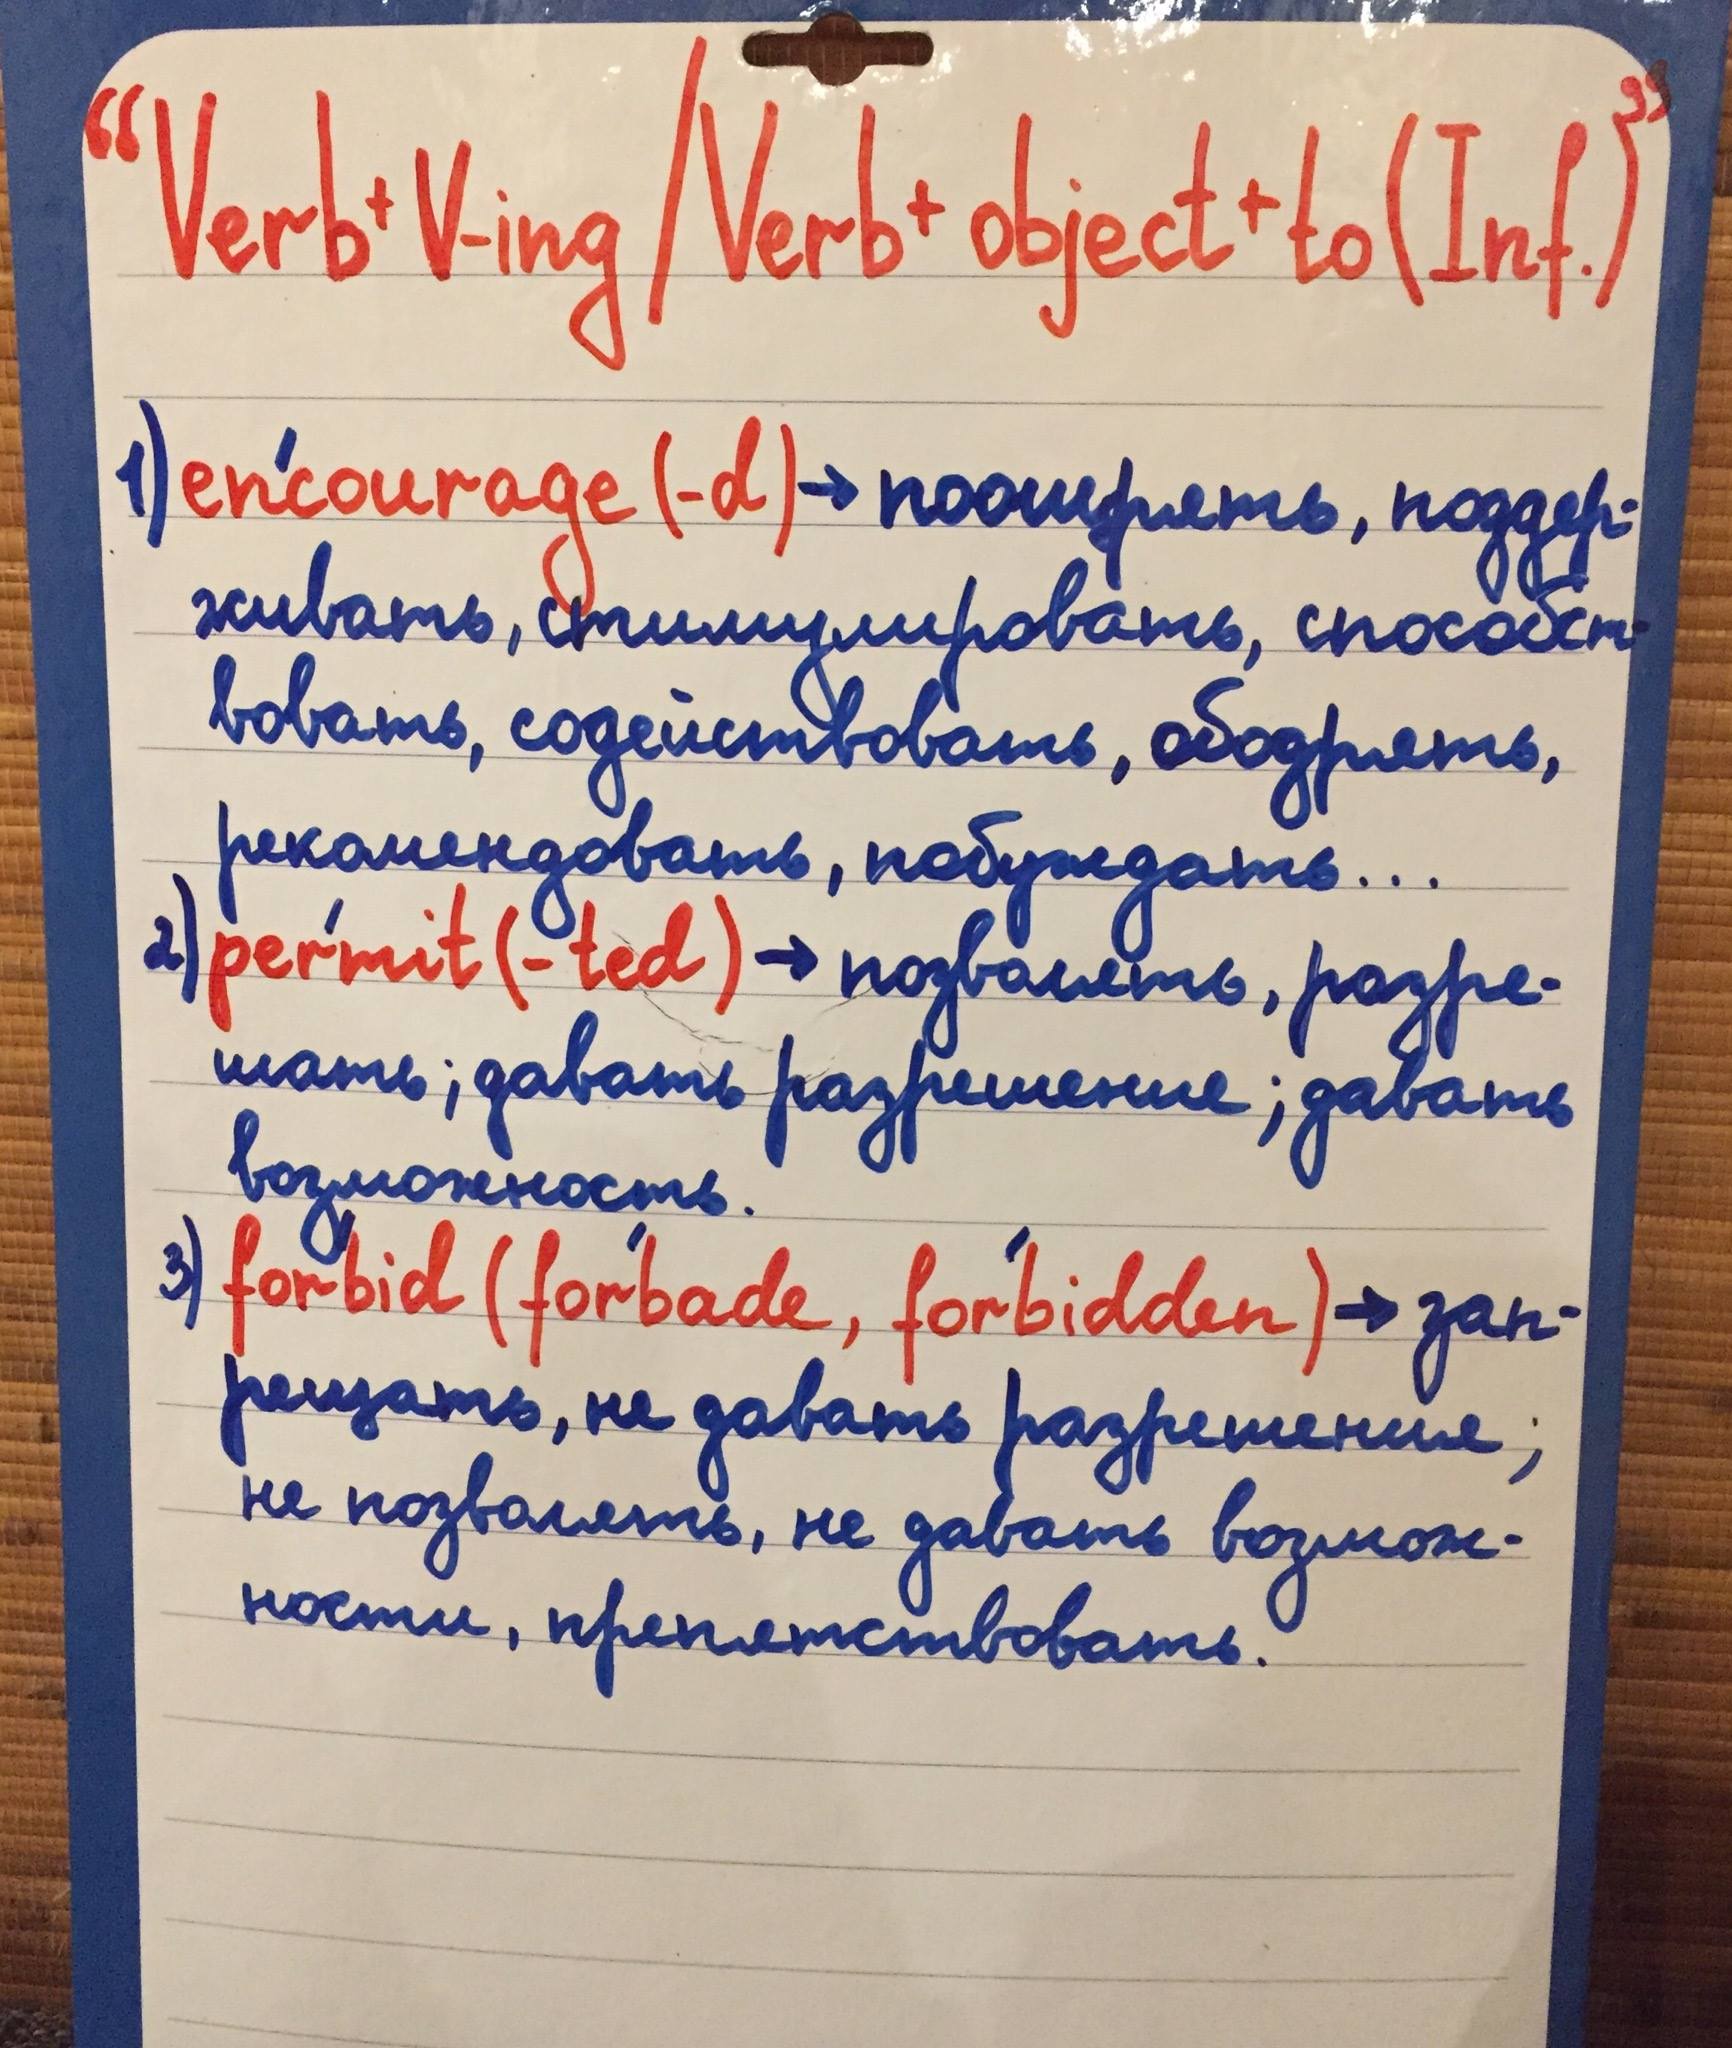 “Verb + V-ing / Verb + object + to (Inf.)”
1) en'courage (-d) → поощрять, поддер-
живать, стимулировать, способст-
вовать, содействовать, ободрять,
рекомендовать, побуждать...
2) per'mit (-ted) → позволять, разре-
шать; давать разрешение; давать
возможность.
3) for'bid (for'bade, for'bidden) → зап-
рещать, не давать разрешения;
не позволять, не давать возмож-
ности, препятствовать.